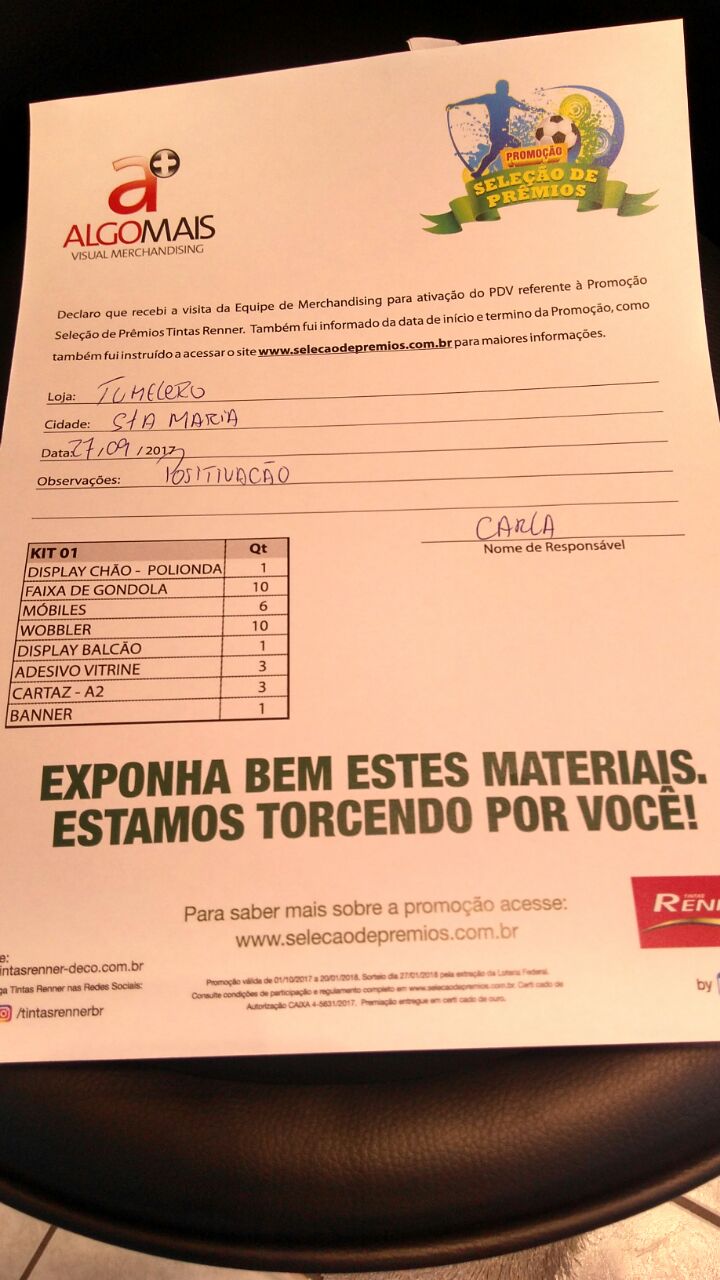 a+
ALGOMAIS
VISUAL MERCHANDISING
PROMOÇÃO
SELEÇÃO DE
PRÊMIOS
Declaro que recebi a visita da Equipe de Merchandising para ativação do PDV referente à Promoção
Seleção de Prêmios Tintas Renner. Também fui informado da data de início e termino da Promoção, como
também fui instruído a acessar o site www.selecaodepremios.com.br para maiores informações.
Loja: TUMELERO
Cidade: STA MARIA
Data: 27/09/2017
Observações: POSITIVAÇÃO
CARLA
Nome de Responsável
KIT 01 Qt
DISPLAY CHÃO - POLIONDA 1
FAIXA DE GONDOLA 10
MÓBILES 6
WOBBLER 10
DISPLAY BALCÃO 1
ADESIVO VITRINE 3
CARTAZ - A2 3
BANNER 1
EXPONHA BEM ESTES MATERIAIS.
ESTAMOS TORCENDO POR VOCÊ!
Para saber mais sobre a promoção acesse:
www.selecaodepremios.com.br
TINTAS
RENN
e:
intasrenner-deco.com.br
ga Tintas Renner nas Redes Sociais:
/tintasrennerbr
Promoção válida de 01/10/2017 a 20/01/2018. Sorteio dia 27/01/2018 pela extração da Loteria Federal.
Consulte condições de participação e regulamento completo em www.selecaodepremios.com.br. Certi cado de
Autorização CAIXA 4-5631/2017. Premiação entregue em certi cado de ouro.
by